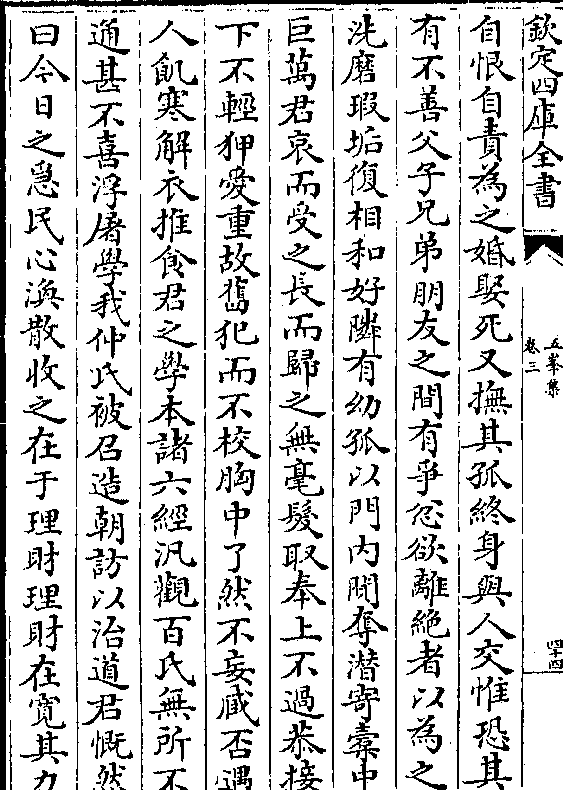 欽定四庫全書
五峯集
卷三
四十四
自恨自責為之婚娶死又撫其孤終身與人交惟恐其
有不善父子兄弟朋友之間有爭忿欲離絶者以為之
洗磨瑕垢復相和好隣有幼孤以門内鬩奪潛寄槖中
巨萬君哀而受之長而歸之無毫髮取奉上不過恭接
下不輕狎愛重故舊犯而不校胸中了然不妄臧否遇
人飢寒解衣推食君之學本諸六經汎觀百氏無所不
通甚不喜浮屠學我仲氏被召造朝訪以治道君慨然
曰今日之急民心渙散收之在于理財理財在寛其力